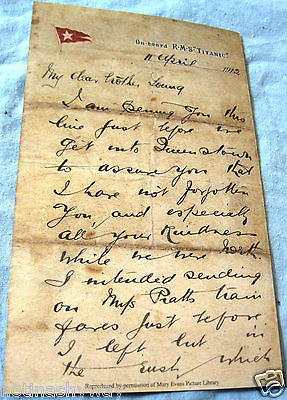 On board R.M.S. "TITANIC".
11 April 1912
My dear brother Young
I am sending you this
line just before we
get into Queenstown
to assure you that
I have not forgotten
you and especially
all your Kindness
while we were North.
I intended sending
on Mrs Pratts train
fares just before
I left but in
the rush which
Reproduced by permission of Mary Evans Picture Library